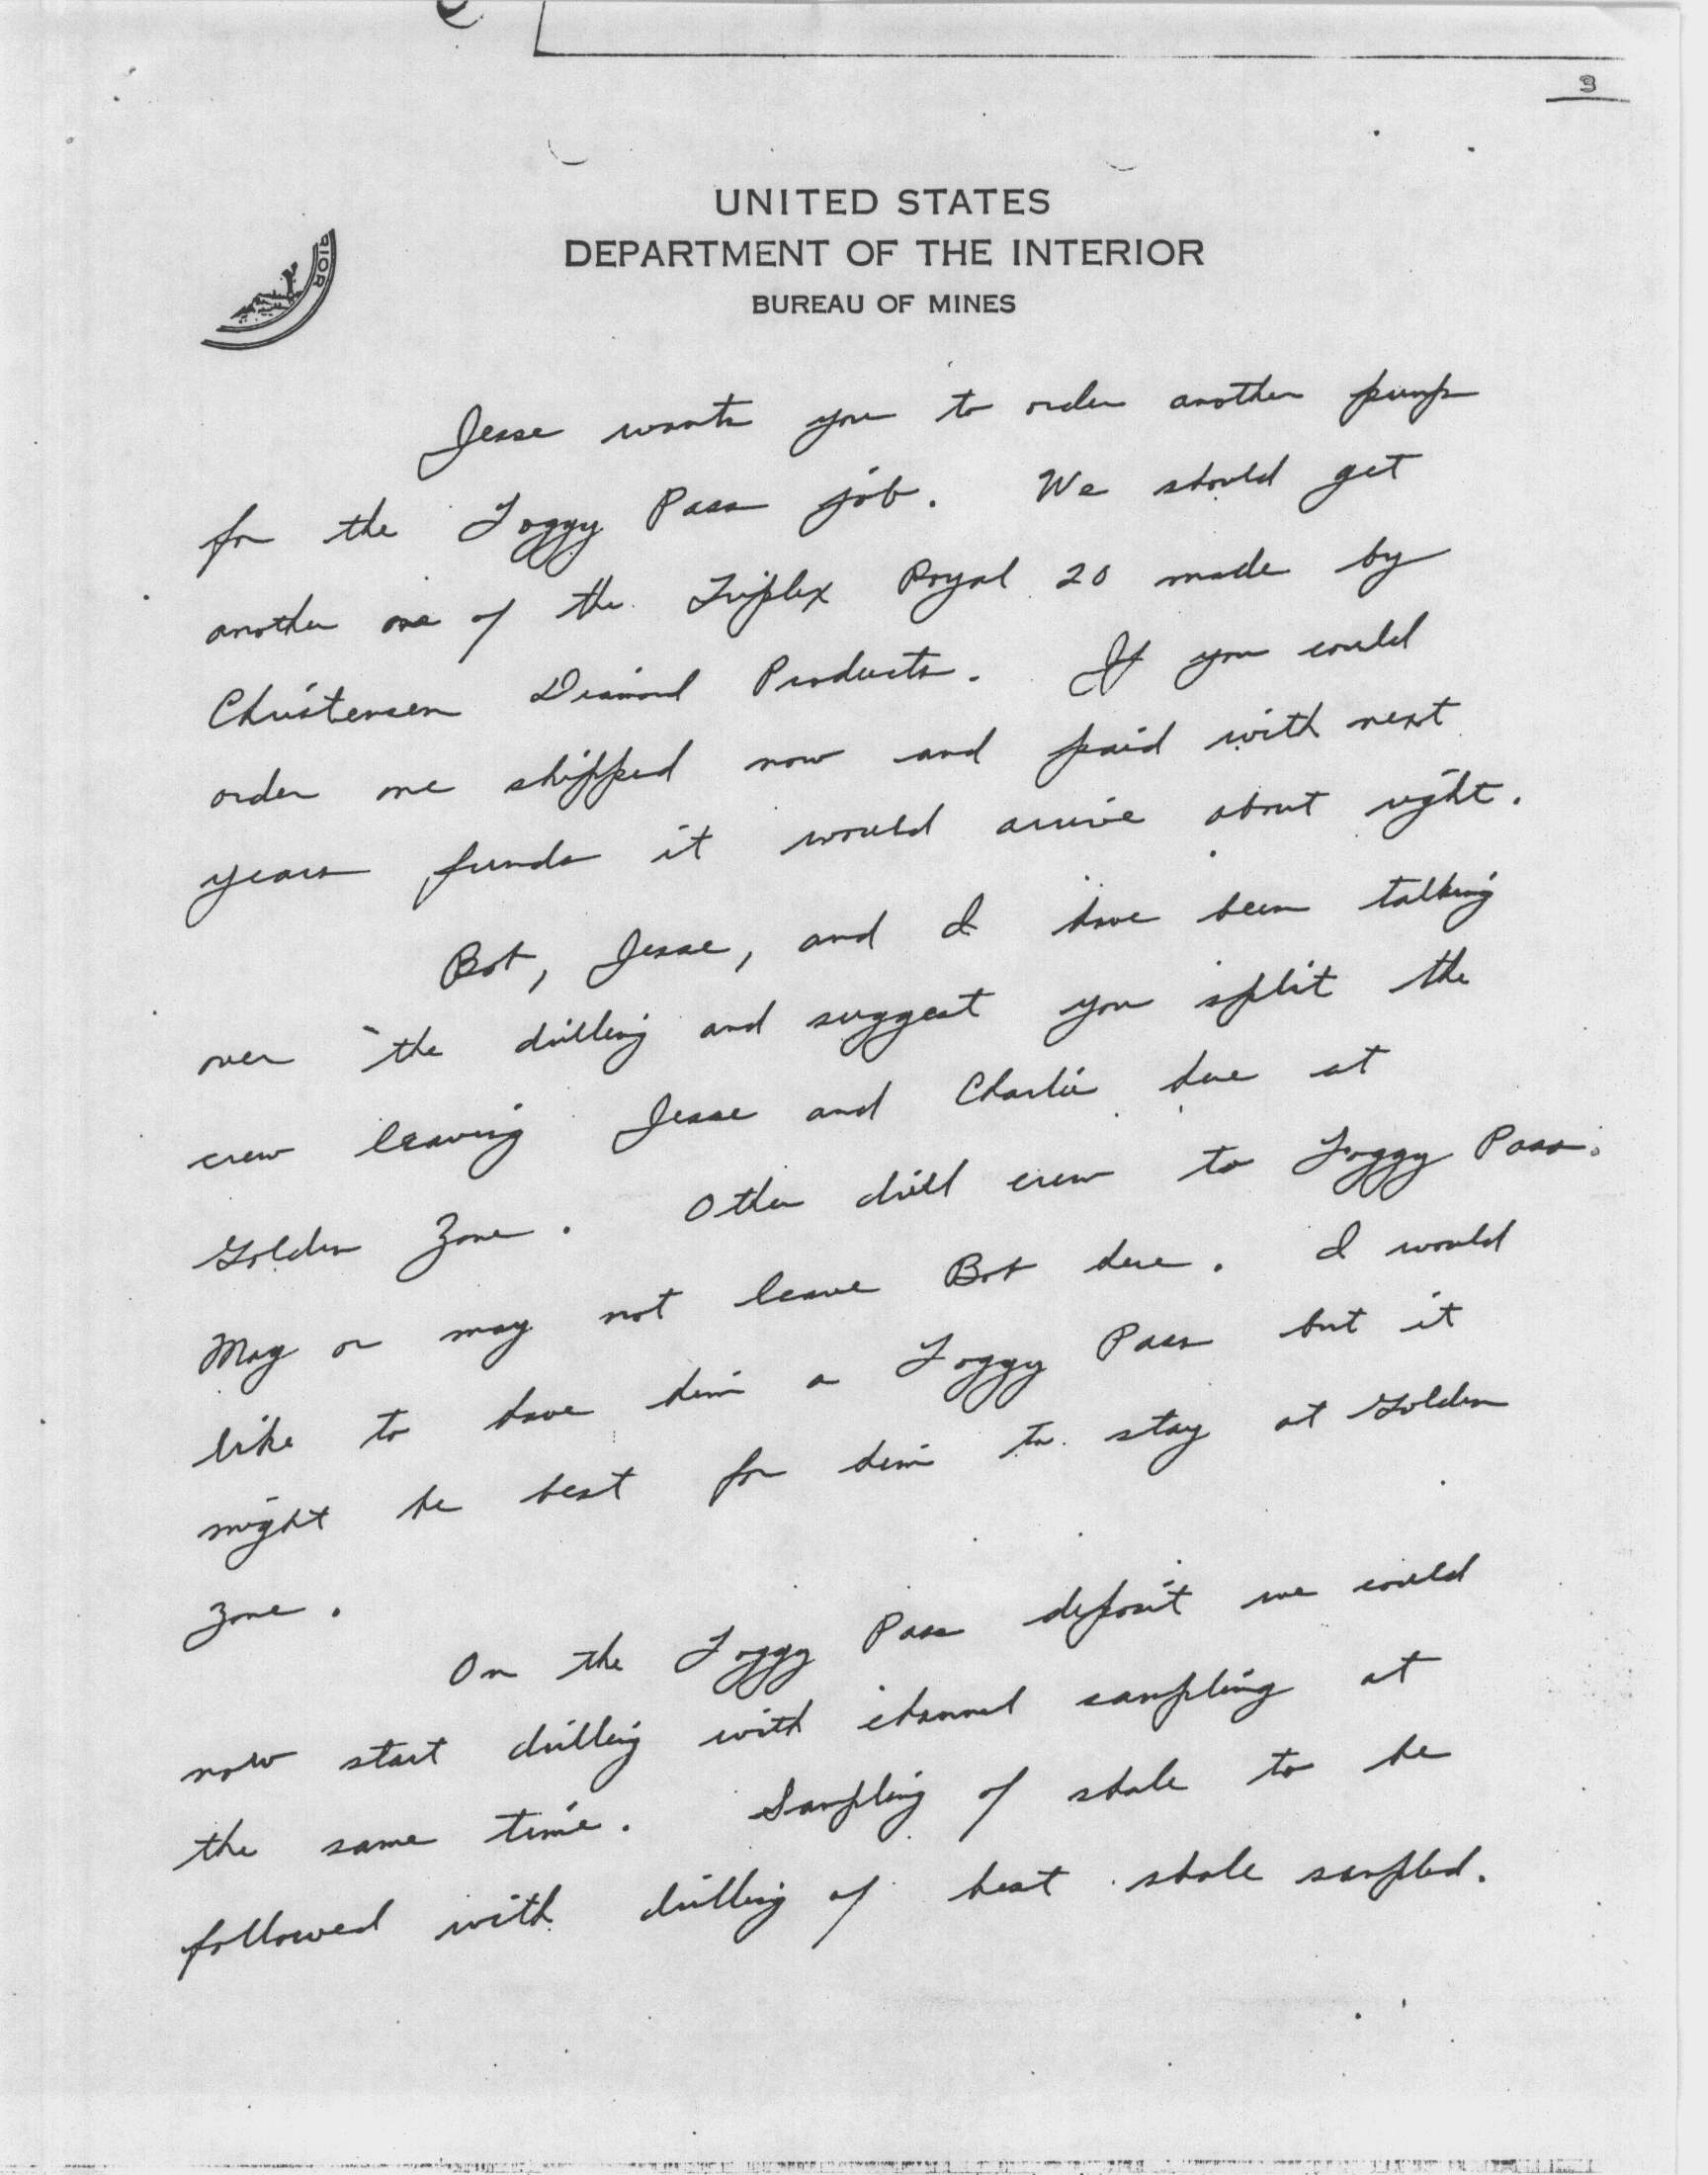 3
UNITED STATES
DEPARTMENT OF THE INTERIOR
BUREAU OF MINES
RIOR
Jesse wants you to order another pump
for the Foggy Pass job. We should get
another one of the Triplex Royal 20 made by
Christensen Diamond Products. If you could
order one shipped now and paid with next
years funds it would arrive about right.
Bob, Jesse, and I have been talking
over the drilling and suggest you split the
crew leaving Jesse and Charlie here at
Golden Zone. Other drill crew to Foggy Pass.
May or may not leave Bob here. I would
like to have him a Foggy Pass but it
might be best for him to stay at Golden
Zone.
On the Foggy Pass deposit we could
now start drilling with channel sampling at
the same time. Sampling of shale to be
followed with drilling of best shale sampled.